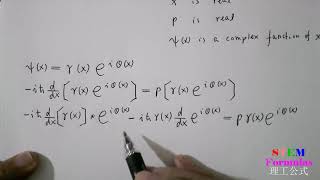 x is real
p is real
ψ(x) is a complex function of x
ψ(x) = γ(x) e^{iθ(x)}
-iħ d/dx [γ(x) e^{iθ(x)}] = p[γ(x) e^{iθ(x)}]
-iħ d/dx [γ(x)] * e^{iθ(x)} - iħ γ(x) d/dx e^{iθ(x)} = p γ(x) e^{iθ(x)}
STEM
Formulas
理工公式